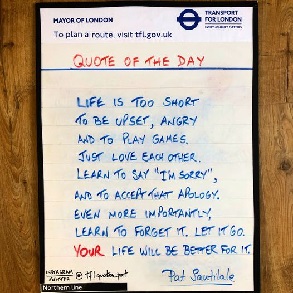 MAYOR OF LONDON
TRANSPORT
FOR LONDON
To plan a route, visit tfl.gov.uk
QUOTE OF THE DAY
LIFE IS TOO SHORT
TO BE UPSET, ANGRY
AND TO PLAY GAMES.
JUST LOVE EACH OTHER.
LEARN TO SAY "I'M SORRY",
AND TO ACCEPT THAT APOLOGY.
EVEN MORE IMPORTANTLY,
LEARN TO FORGET IT. LET IT GO.
YOUR LIFE WILL BE BETTER FOR IT.
Northern Line